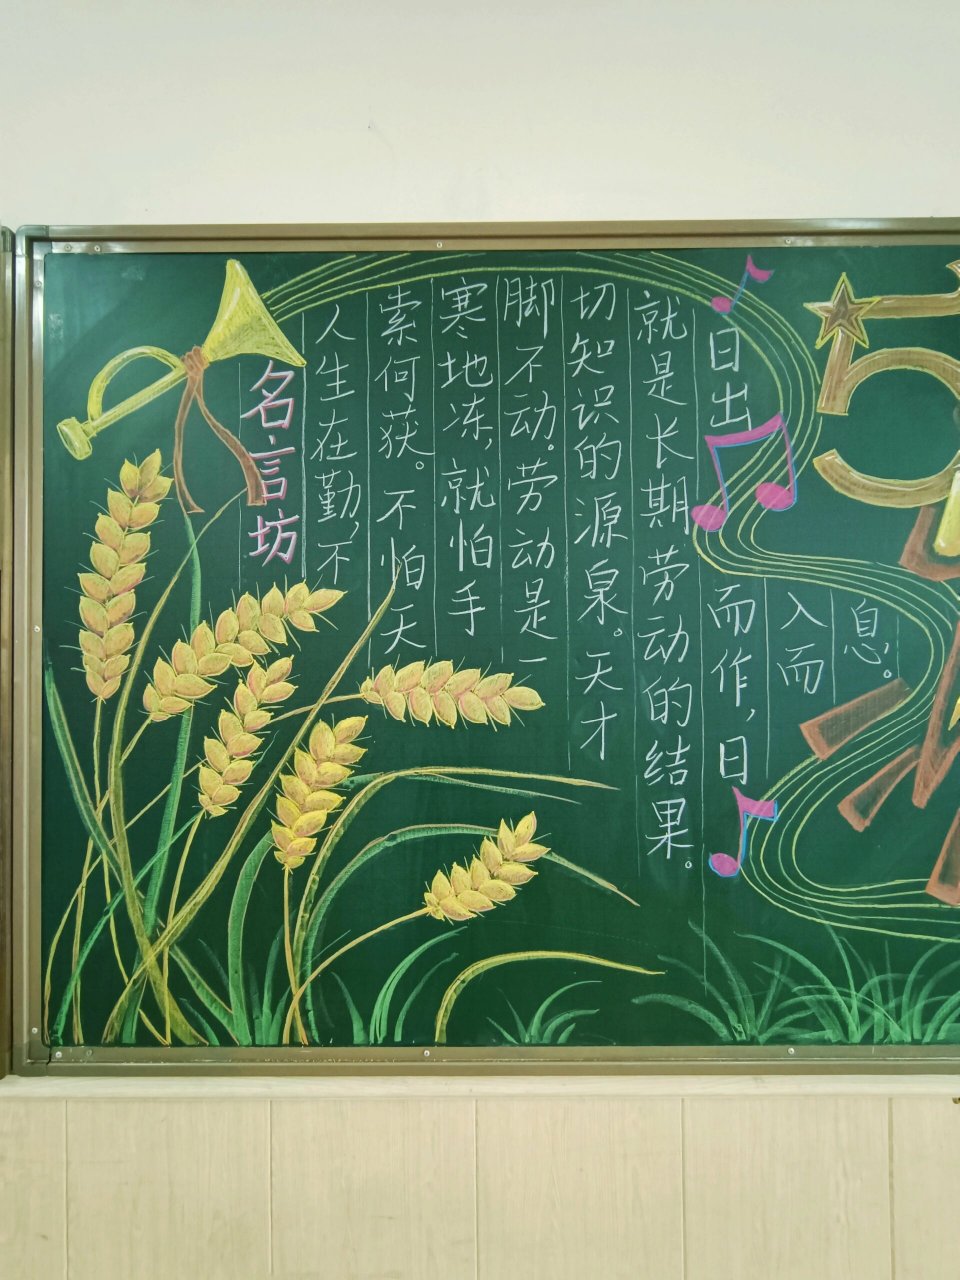 名言坊
人生在勤,不
索何获。不怕天
寒地冻,就怕手
脚不动。劳动是一
切知识的源泉。天才
就是长期劳动的结果。
日出而作,日
入而
息。
5